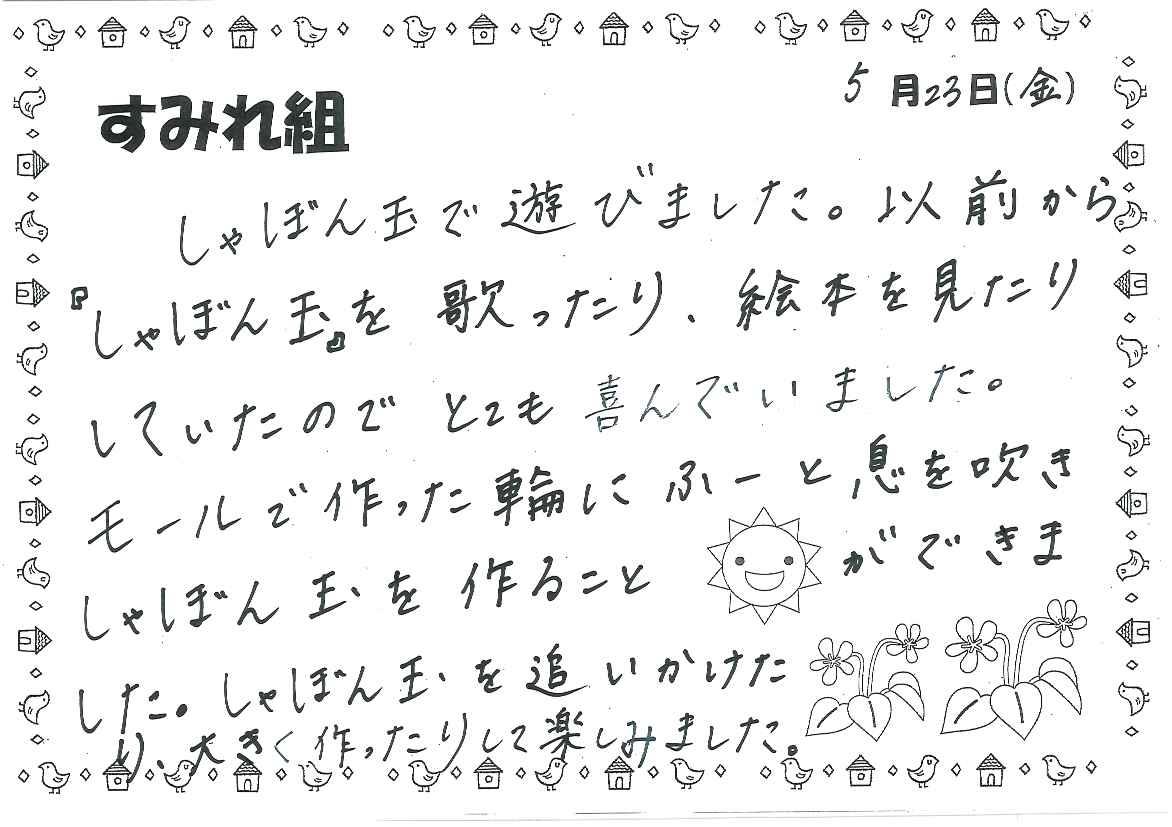 すみれ組
5月23日(金)
しゃぼん玉で遊びました。以前から
『しゃぼん玉』を歌ったり、絵本を見たり
していたのでとても喜んでいました。
モールで作った輪にふーと息を吹き
しゃぼん玉を作ることができま
した。しゃぼん玉を追いかけた
り、大きく作ったりして楽しみました。